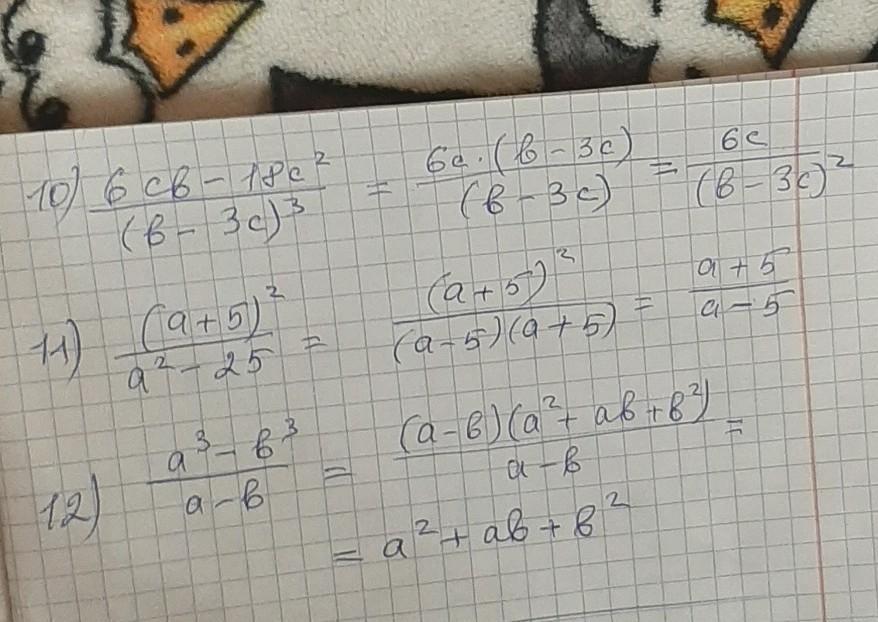 10) (6cb - 18c²)/(b - 3c)³ = (6c·(b - 3c))/(b - 3c) = 6c/(b - 3c)²
11) (a+5)²/(a² - 25) = (a+5)²/((a-5)(a+5)) = (a+5)/(a-5)
12) (a³ - b³)/(a-b) = ((a-b)(a² + ab + b²))/(a-b) =
= a² + ab + b²